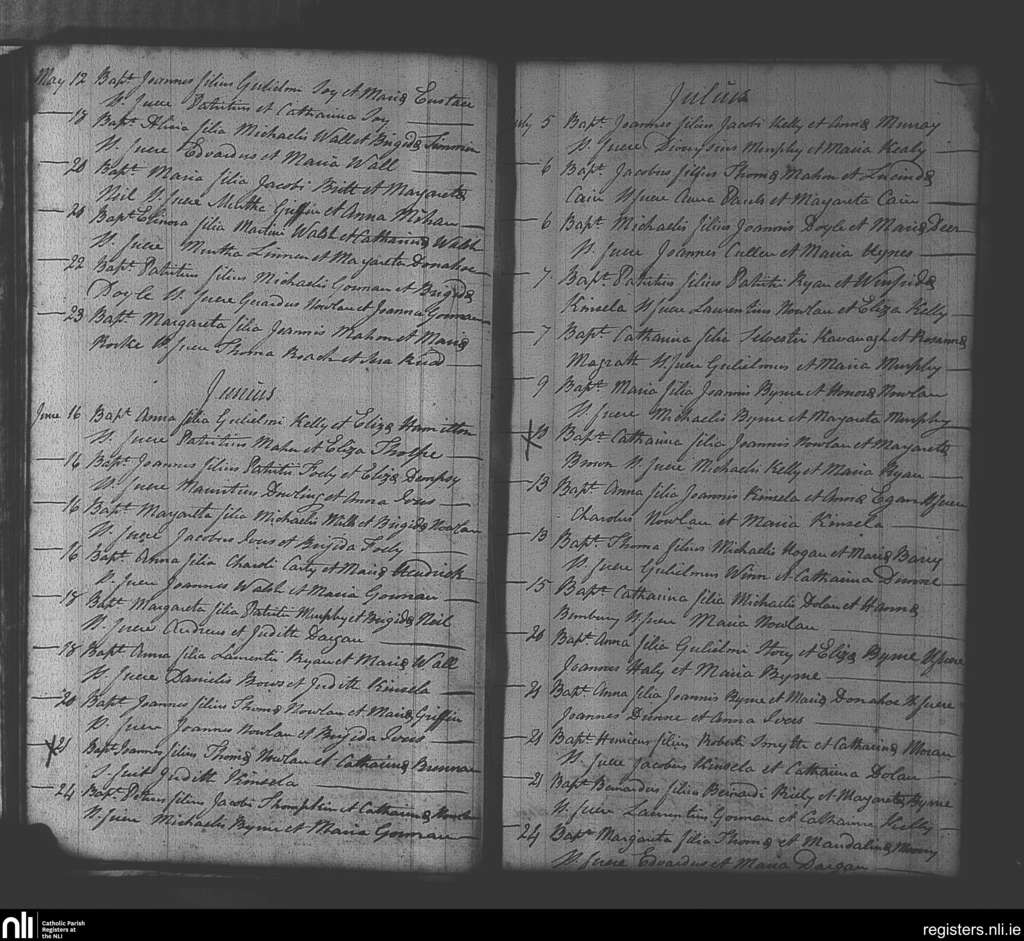 May 12 Bapt. Joannes filius Gulielmi Joy et Mariæ Eustace
S. fuere Patritius et Catharina Joy
18 Bapt. Alicia filia Michaelis Wall et Brigidæ
S. fuere Edvardus et Maria Wall
20 Bapt. Maria filia Jacobi et Margaretæ
Neil S. fuere Murtha Griffin et Anna
20 Bapt. Elinora filia Martini Walsh et Catharinæ Walsh
S. fuere Murtha Linnen et Margareta Donahoe
22 Bapt. Patritius filius Michaelis Gorman et Brigidæ
Doyle S. fuere Gerardus Nowlan et Joanna Gorman
23 Bapt. Margareta filia Joannis Mahon et Mariæ
Rorke S. fuere Thoma Roach et
Junius
June 16 Bapt. Anna filia Gulielmi Kelly et Elizæ Hamilton
S. fuere Patritius Maher et Eliza Thorpe
16 Bapt. Joannes filius Patritii Foley et Elizæ Dempsy
S. fuere Mauritius Dowling et Anna Ivers
16 Bapt. Margareta filia Michaelis Wall et Brigidæ Nowlan
S. fuere Jacobus Ivers et Brigida Foley
16 Bapt. Anna filia Charoli Carty et Mariæ Hendrick
S. fuere Joannes Walsh et Maria Gorman
18 Bapt. Margareta filia Patritii Murphy et Brigidæ Neil
S. fuere Andreus et Judith Dargan
18 Bapt. Anna filia Laurentii Ryan et Mariæ Wall
S. fuere Danielis Bowes et Judith Kinsela
20 Bapt. Joannes filius Thomæ Nowlan et Mariæ Griffin
S. fuere Joannes Nowlan et Brigida Ivers
X 21 Bapt. Joannis filius Thomæ Nowlan et Catharinæ Brennan
S. fuit Judith Kinsela
24 Bapt. Petrus filius Jacobi Thompkin et Catharinæ Nowlan
S. fuere Michaelis Byrne et Maria Gorman
Julius
July 5 Bapt. Joannes filius Jacobi Kelly et Annæ Murray
S. fuere Dionysius Murphy et Maria Kealy
6 Bapt. Jacobus filius Thomæ Mahon et Lucindæ
Cain S. fuere Anna et Margareta Cain
6 Bapt. Michaelis filius Joannis Doyle et Mariæ Deer
S. fuere Joannes Cullen et Maria Hynes
7 Bapt. Patritius filius Patritii Ryan et Winifridæ
Kinsela S. fuere Laurentius Nowlan et Eliza Kelly
7 Bapt. Catharina filia Silvestri Kavanagh et Rosannæ
Magrath S. fuere Gulielmus et Maria Murphy
9 Bapt. Maria filia Joannis Byrne et Honoræ Nowlan
S. fuere Michaelis Byrne et Margareta Murphy
X 10 Bapt. Catharina filia Joannis Nowlan et Margaretæ
Brown S. fuere Michaelis Kelly et Maria Ryan
13 Bapt. Anna filia Joannis Kinsela et Annæ Egan S. fuere
Charolus Nowlan et Maria Kinsela
13 Bapt. Thoma filius Michaelis Hogan et Mariæ Barry
S. fuere Gulielmus Winn et Catharina Dunne
15 Bapt. Catharina filia Michaelis Dolan et Hannæ
Bambury S. fuere Maria Nowlan
20 Bapt. Anna filia Gulielmi Story et Elizæ Byrne S. fuere
Joannes Haly et Maria Byrne
21 Bapt. Anna filia Joannis Byrne et Mariæ Donahoe S. fuere
Joannes Dunne et Anna Ivers
21 Bapt. Henricus filius Roberti Smyth et Catharinæ Moran
S. fuere Jacobus Kinsela et Catharina Dolan
21 Bapt. Bernardus filia Bernardi Kiely et Margaretæ Byrne
S. fuere Laurentius Gorman et Catharina Kelly
24 Bapt. Margareta filia Thomæ et Mandalinæ Moony
S. fuere Edvardus et Maria Dargan
nli Catholic Parish
Registers at
the NLI
registers.nli.ie